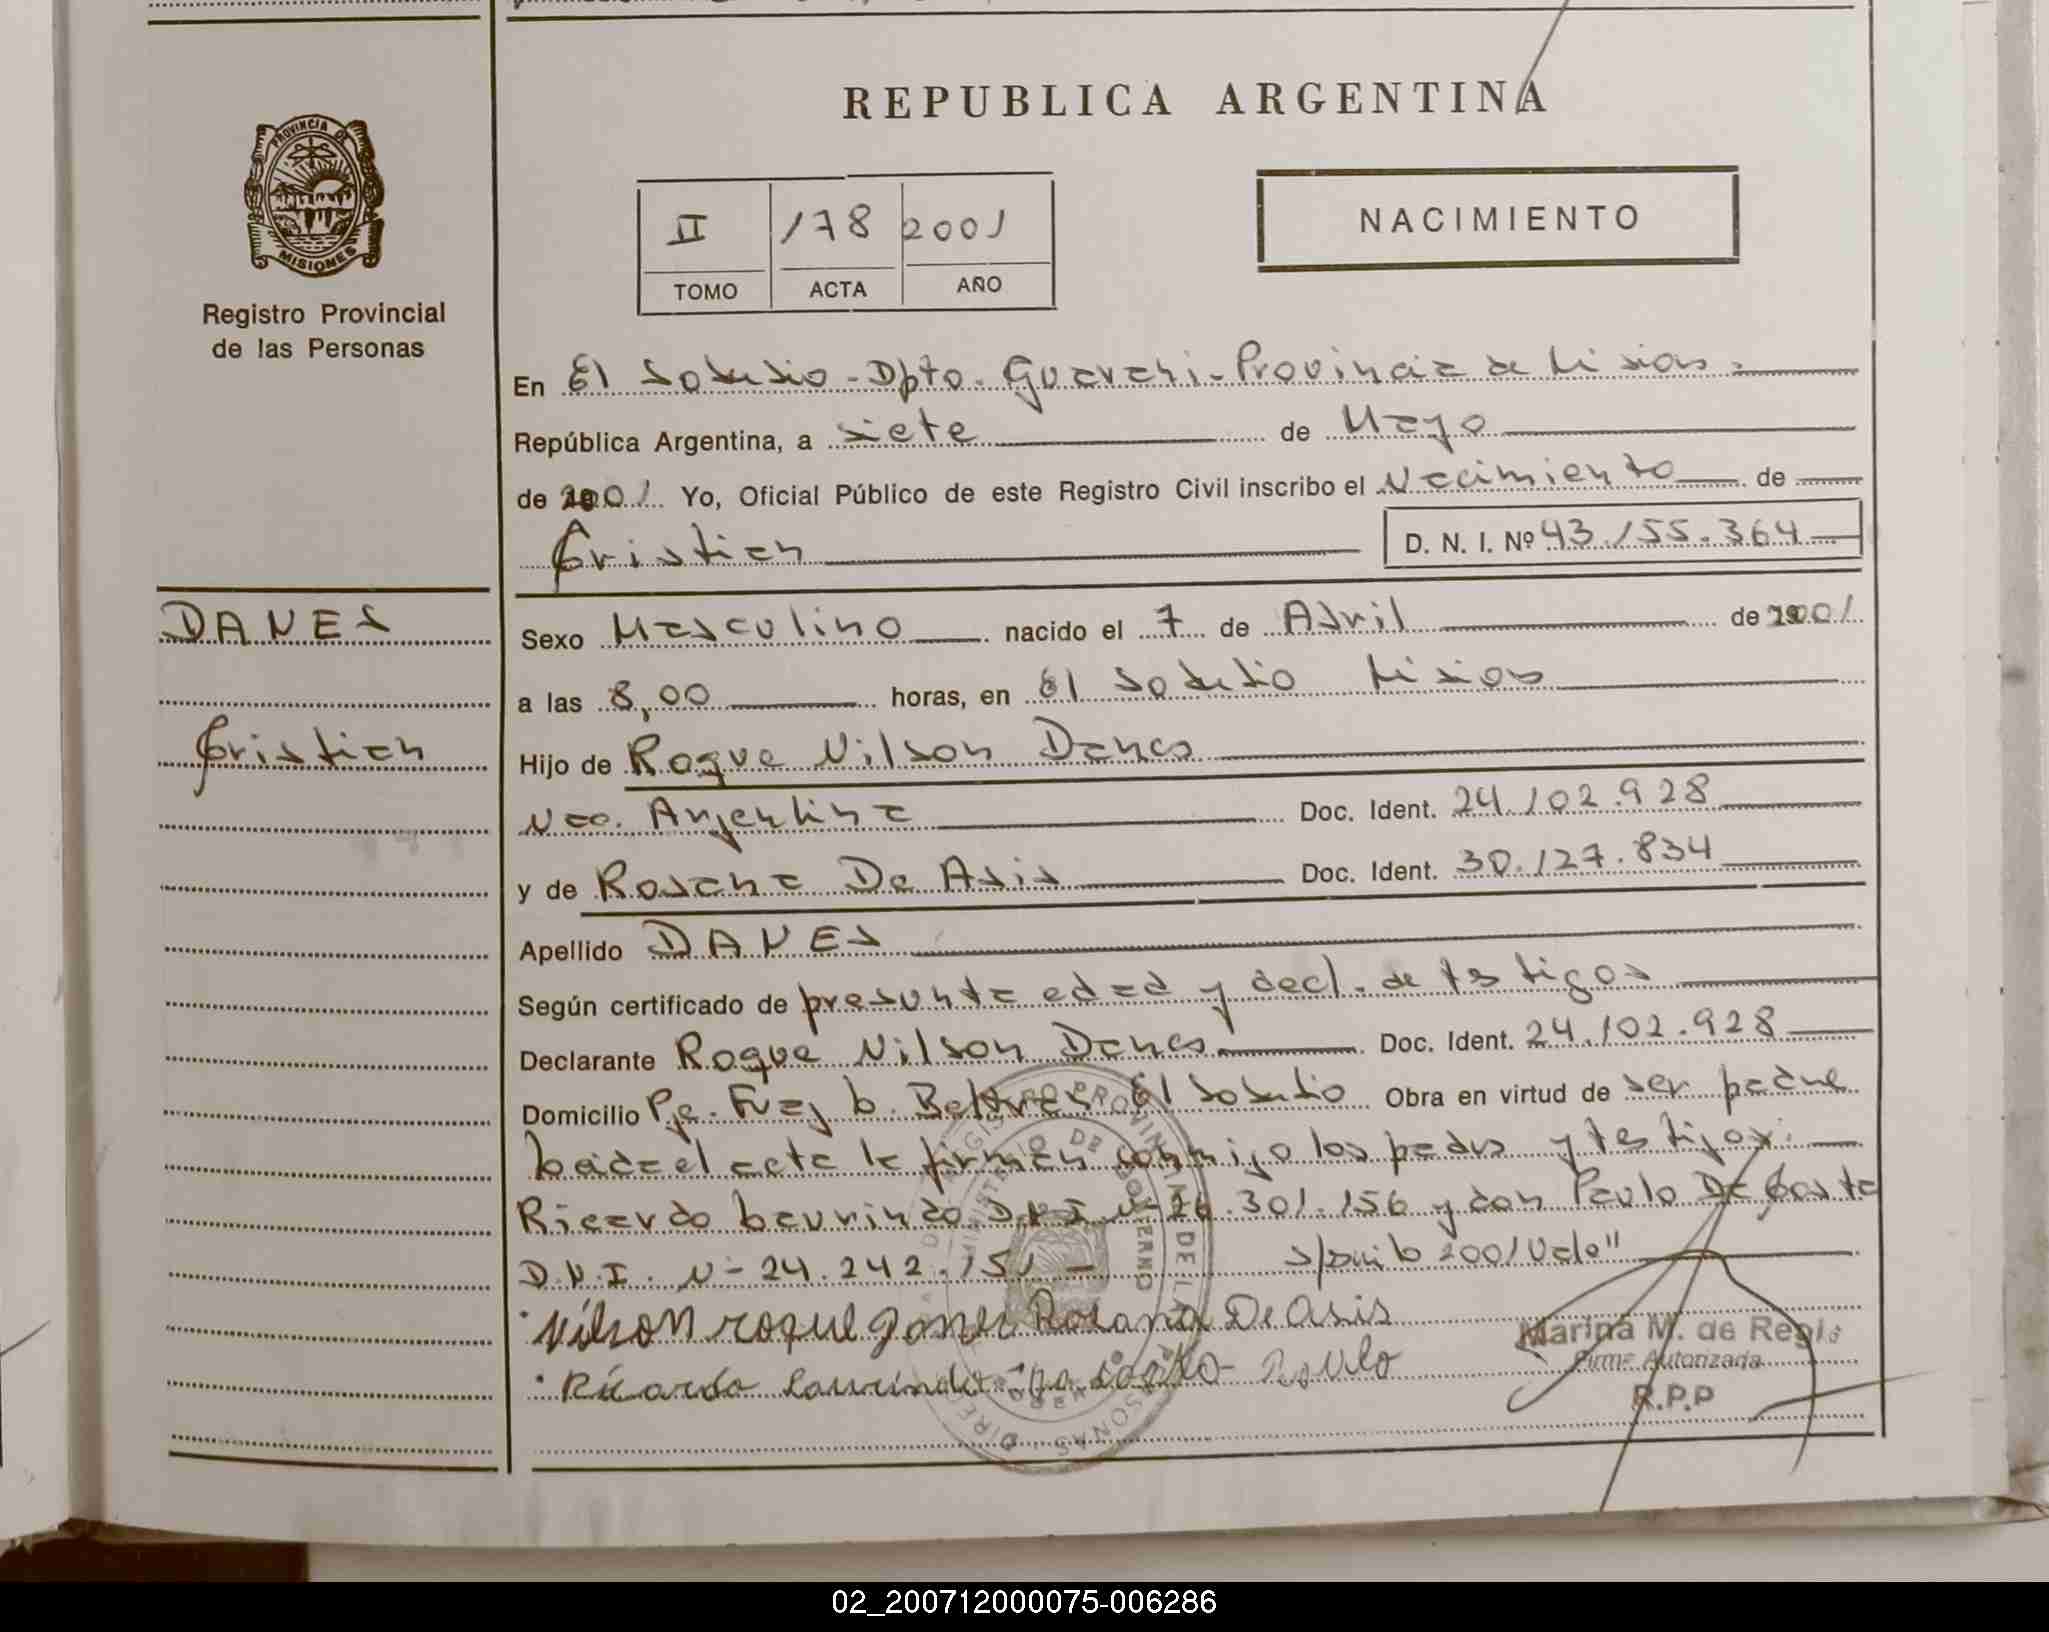 REPUBLICA ARGENTINA
PROVINCIA DE
MISIONES
Registro Provincial
de las Personas
II 178 2001
TOMO ACTA AÑO
NACIMIENTO
En El Soberbio - Dpto. Guarani - Provincia de Misiones
República Argentina, a siete de Mayo
de 2001. Yo, Oficial Público de este Registro Civil inscribo el Nacimiento de
Cristian D. N. I. Nº 43.155.364
DANES
Cristian
Sexo Masculino nacido el 7 de Abril de 2001
a las 8,00 horas, en El Soberbio Misiones
Hijo de Roque Nilson Danes
Nac. Argentina Doc. Ident. 24.102.928
y de Rosana De Asis Doc. Ident. 30.127.834
Apellido DANES
Según certificado de presunta edad y decl. de testigos
Declarante Roque Nilson Danes Doc. Ident. 24.102.928
Domicilio Pje. Fray L. Beltran El Soberbio Obra en virtud de ser padre
Leida el acta la firman conmigo los padres y testigos:
Ricardo Laurindo D.N.I. Nº 26.301.156 y don Paulo Da Costa
D.N.I. Nº 24.242.151 - 2001 Vale"
Nilson roque Danes Rosana De Asis
Ricardo Laurindo Paulo
Marina M. de Regis
Firma Autorizada
R.P.P
02_200712000075-006286